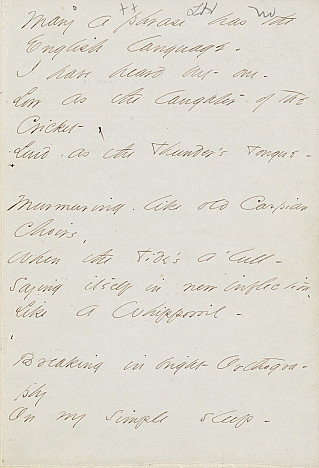 Many a phrase has the
English language -
I have heard but one -
Low as the laughter of the
Cricket -
Loud - as the Thunder's Tongue -
Murmuring - like old Caspian
Choirs,
When the Tide's a'lull -
Saying itself in new inflection -
Like a Whippowil -
Breaking in bright Orthogra-
phy
On my simple sleep -